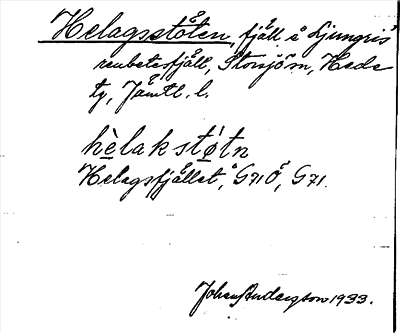 Helagsstøten, fjäll å Ljungris
renbetesfjäll, Storsjö sn, Hede
tg, Jämtl. l.
hèlakstøtn
Helagsfjället, G71Ö, G71.
Johan Andersson 1933.